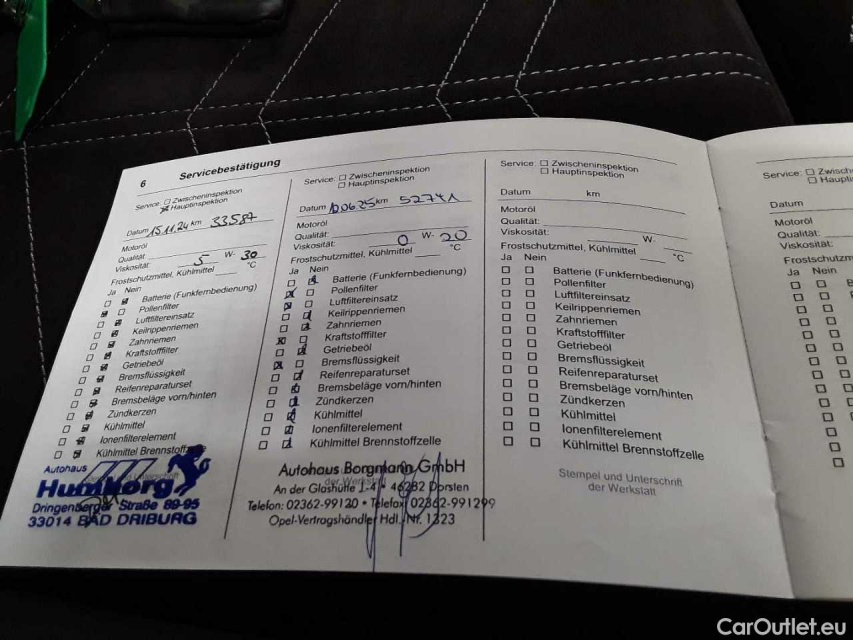 6 Servicebestätigung
Service: Zwischeninspektion
Hauptinspektion
Datum 15.11.24 km 33587
Motoröl
Qualität:
Viskosität: 5 W- 30
Frostschutzmittel, Kühlmittel °C
Ja Nein
Batterie (Funkfernbedienung)
Pollenfilter
Luftfiltereinsatz
Keilrippenriemen
Zahnriemen
Kraftstofffilter
Getriebeöl
Bremsflüssigkeit
Reifenreparaturset
Bremsbeläge vorn/hinten
Zündkerzen
Kühlmittel
Ionenfilterelement
Kühlmittel Brennstoffzelle
Autohaus
Humborg
Dringenberger Straße 89-95
33014 BAD DRIBURG
Service: Zwischeninspektion
Hauptinspektion
Datum 10.06.25 km 52741
Motoröl
Qualität:
Viskosität: 0 W- 20
Frostschutzmittel, Kühlmittel °C
Ja Nein
Batterie (Funkfernbedienung)
Pollenfilter
Luftfiltereinsatz
Keilrippenriemen
Zahnriemen
Kraftstofffilter
Getriebeöl
Bremsflüssigkeit
Reifenreparaturset
Bremsbeläge vorn/hinten
Zündkerzen
Kühlmittel
Ionenfilterelement
Kühlmittel Brennstoffzelle
Autohaus Borgmann GmbH
An der Glashütte 1-4 • 46282 Dorsten
Telefon: 02362-99120 • Telefax 02362-991299
Opel-Vertragshändler Hdl.-Nr. 1323
Service: Zwischeninspektion
Hauptinspektion
Datum km
Motoröl
Qualität:
Viskosität: W-
Frostschutzmittel, Kühlmittel °C
Ja Nein
Batterie (Funkfernbedienung)
Pollenfilter
Luftfiltereinsatz
Keilrippenriemen
Zahnriemen
Kraftstofffilter
Getriebeöl
Bremsflüssigkeit
Reifenreparaturset
Bremsbeläge vorn/hinten
Zündkerzen
Kühlmittel
Ionenfilterelement
Kühlmittel Brennstoffzelle
Stempel und Unterschrift
der Werkstatt
Service: Zwisch
Haupti
Datum
Motoröl
Qualität:
Viskosität:
Frostschutzm
Ja Nein
CarOutlet.eu